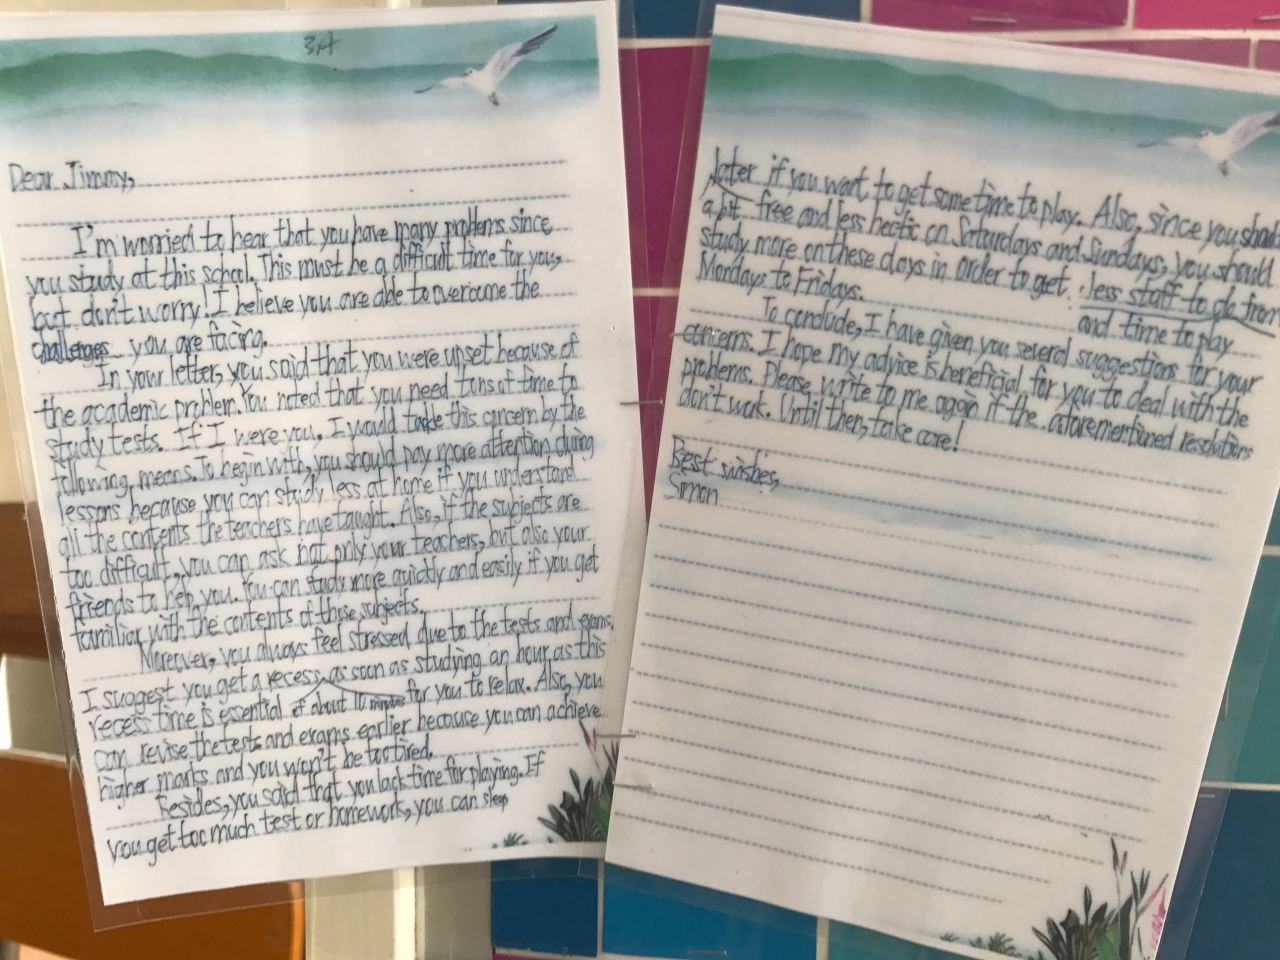 3A
Dear Jimmy,
I'm worried to hear that you have many problems since
you study at this school. This must be a difficult time for you,
but don't worry! I believe you are able to overcome the
challenges you are facing.
In your letter, you said that you were upset because of
the academic problem. You noted that you need tons of time to
study tests. If I were you, I would take this concern by the
following means. To begin with, you should pay more attention during
lessons because you can study less at home if you understand
all the contents the teachers have taught. Also, if the subjects are
too difficult, you can ask not only your teachers, but also your
friends to help you. You can study more quickly and easily if you get
familiar with the contents of those subjects.
Moreover, you always feel stressed due to the tests and exams,
I suggest you get a recess as soon as studying an hour as this
of about 10 minutes
recess time is essential for you to relax. Also, you
can revise the tests and exams earlier because you can achieve
higher marks and you won't be too tired.
Besides, you said that you lack time for playing. If
you get too much test or homework, you can sleep
later if you want to get some time to play. Also, since you
a bit free and less hectic on Saturdays and Sundays, you should
study more on these days in order to get less staff to do from
Mondays to Fridays. and time to play
To conclude, I have given you several suggestions for your
concerns. I hope my advice is beneficial for you to deal with the
problems. Please write to me again if the aforementioned resolutions
don't work. Until then, take care!
Best wishes,
Simon